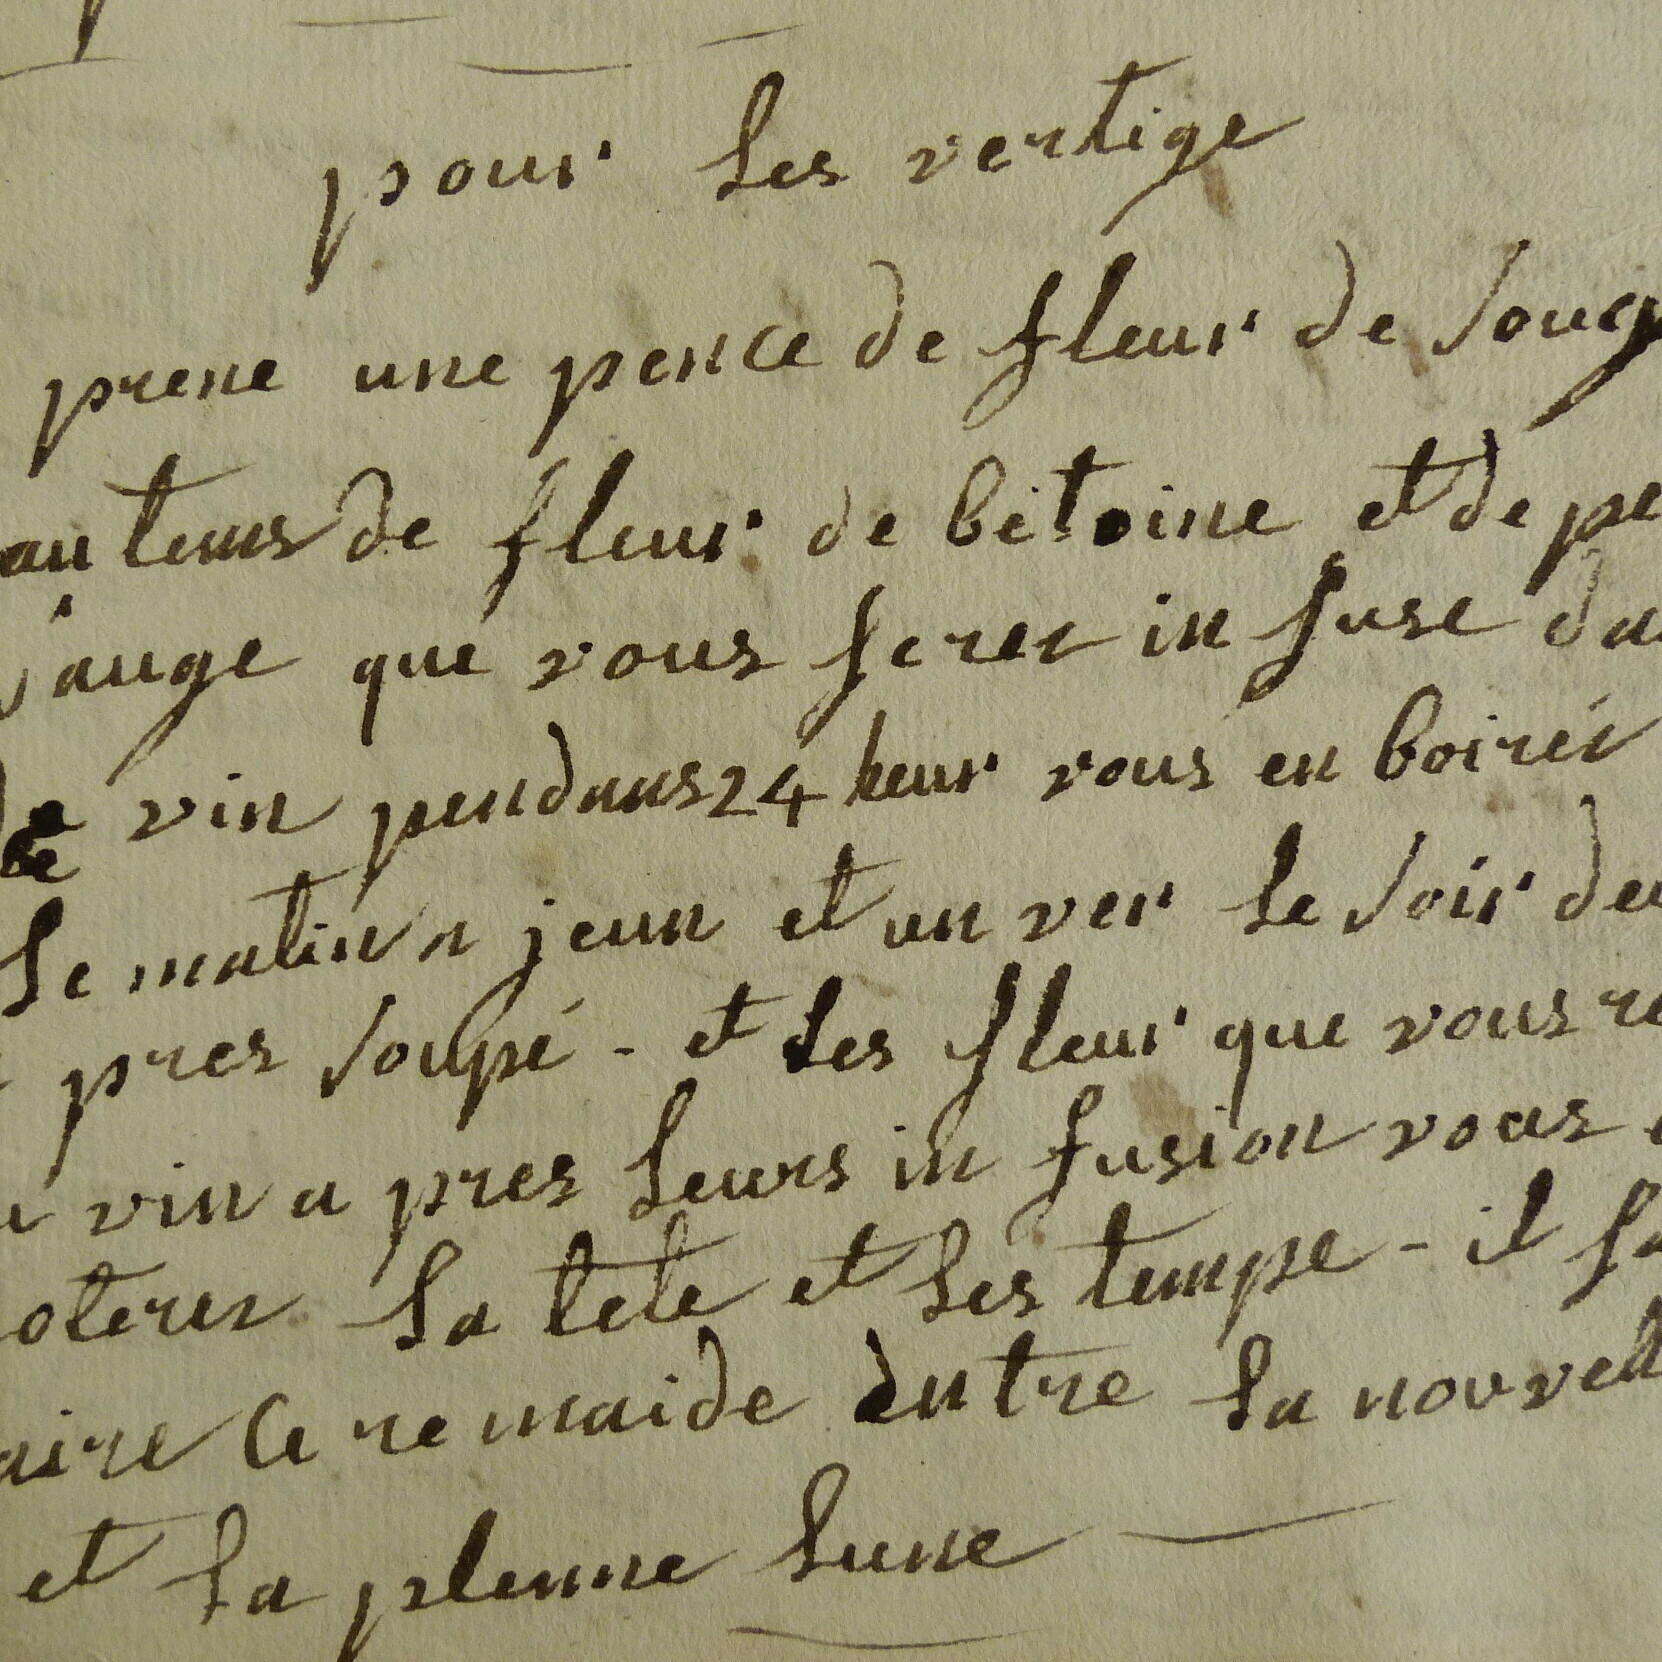 pour les vertige
prene une pence de fleur de soucy
autems de fleur de betoine et de pe
sauge que vous ferer in fuse da
de vin pendans 24 heur vous en boirér
le matin a jeun et un ver le soir deu
pres soupé - et les fleur que vous re
vin a pres leurs in fusion vous
oterer la tete et les tempe - il fa
aire ce remaide entre la nouvell
et la plenne lune